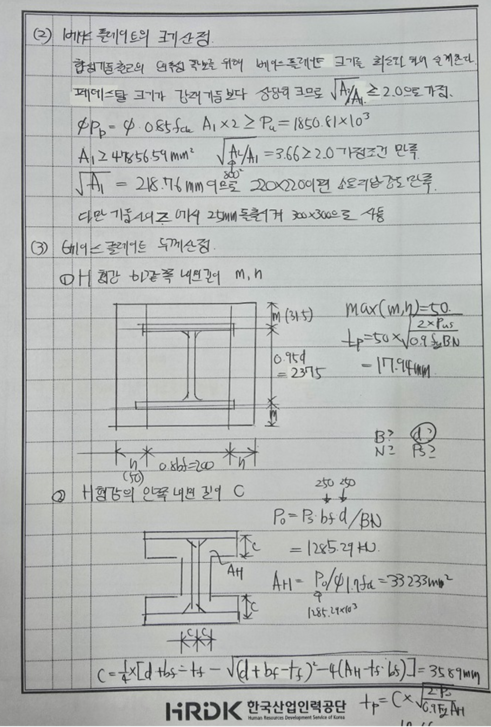 (2) 베이스 플레이트의 크기산정
합성기둥 효율의 연속성 확보를 위해 베이스플레이트 크기를 최소로 하여 설계한다.
페데스탈 크기가 강재기둥보다 상당히 크므로 √A₂/A₁ ≥ 2.0으로 가정.
φPp = φ 0.85fck A₁×2 ≥ Pu = 1850.81×10³
A₁ ≥ 47856.59mm² √A₂/A₁ = 3.66 ≥ 2.0 가정조건 만족
800²
√A₁ = 218.76mm 이므로 220×220이면 소요지압강도만족.
다만 기둥사이즈 에서 25mm 돌출시켜 300×300으로 사용
(3) 베이스플레이트 두께산정
① H형강 바깥쪽 내민길이 m, n
m (31.5)
max(m,n)=50.
tp=50×√2×Pus/0.9fyBN
0.95d
= 237.5
= 17.94mm
m
B? d?
N? Ps?
n 0.8bf=200 n
(50)
② H형강의 안쪽 내민 길이 C
250 250
Po = Ps·bf d/BN
= 1285.29 kN
C AH
AH = Po/φ1.7fck = 33233mm²
1285.29×10³
C
C C
C = ¼×[d+bf-tf - √(d+bf-tf)²-4(AH-tf·bf)] = 35.89mm
tp = C×√2Po/0.9Fy AH
HRDK 한국산업인력공단
Human Resources Development Service of Korea